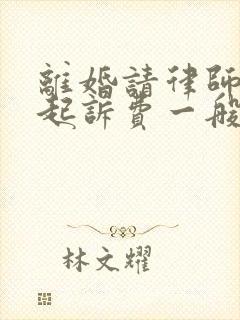 離婚請律師
起訴費一般
林文耀